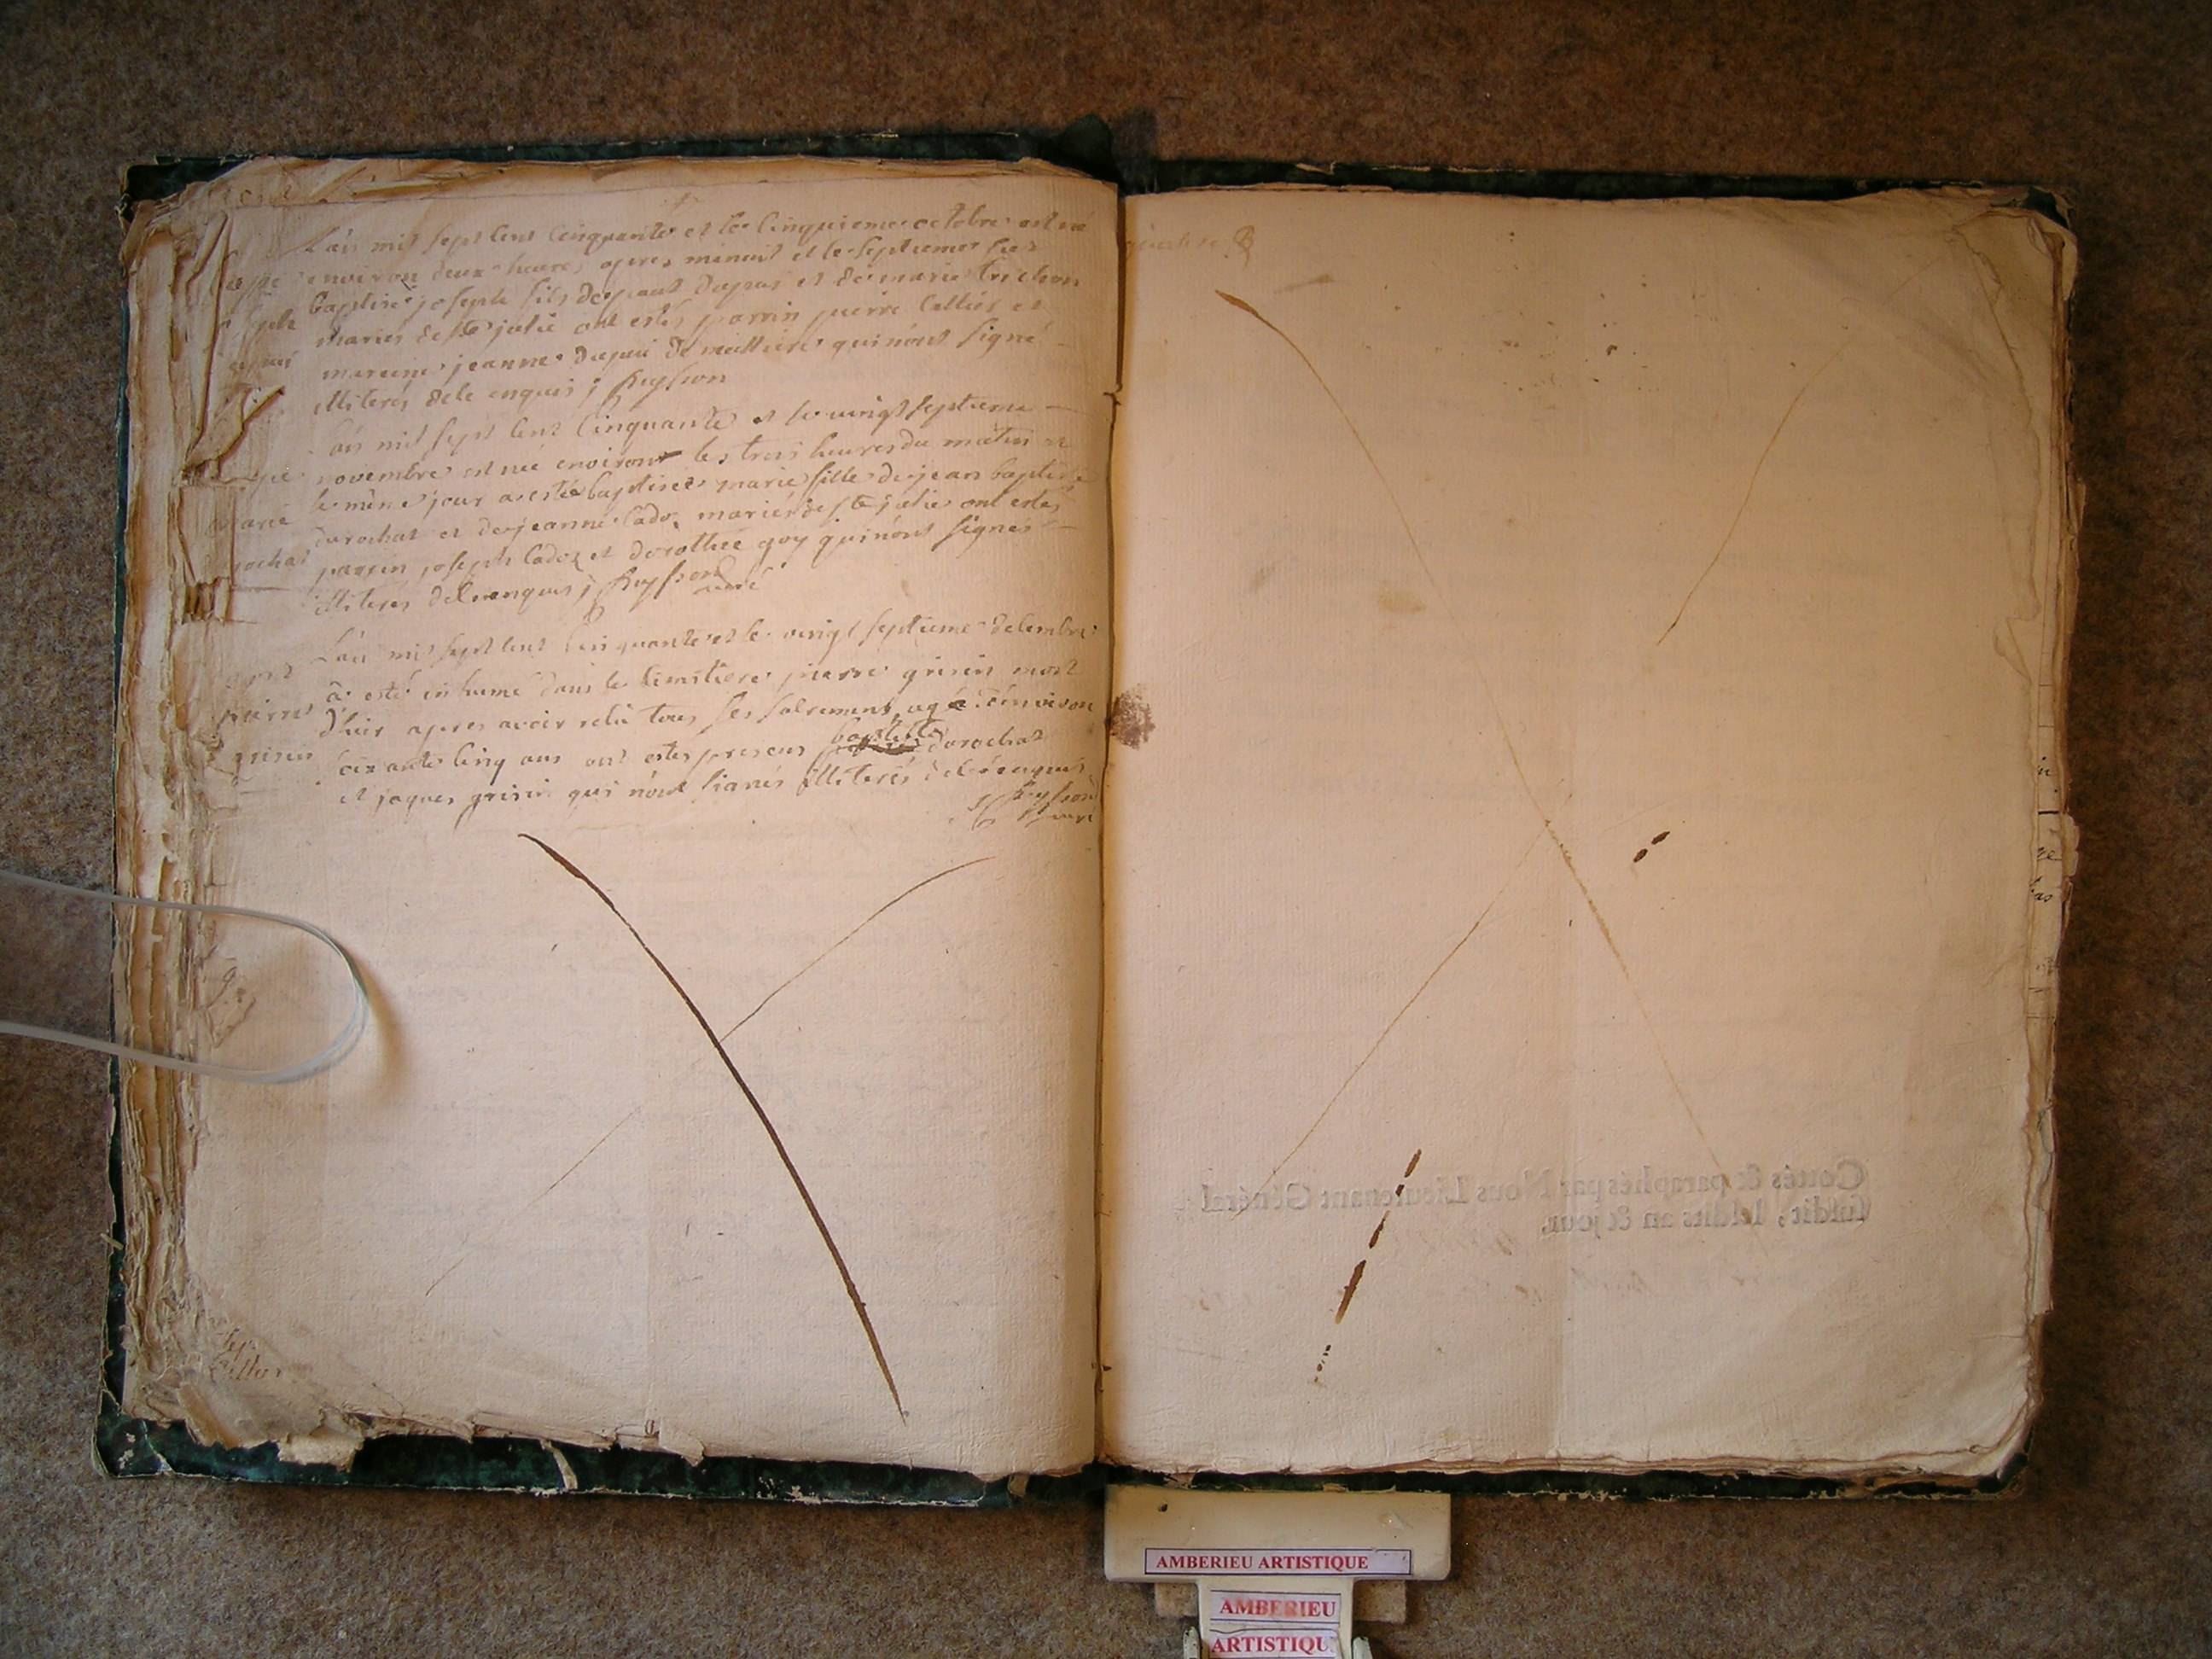 L'an mil sept cent cinquante et le cinquieme octobre est né
environ deux heures apres minuit et le septieme fut
baptisé joseph fils de
dupuis et de marie trichon
mariés de ste julie ont estés parrin pierre collier et
mareine jeanne dupui de
qui n'ont signé
illiterés de ce enquis
L'an mil sept cent cinquante et le vingt septieme
novembre est née environ les trois heures du matin et
le même jour a esté baptisée marie fille de jean baptiste
durochat et de jeanne cadoz mariés de ste julie ont estés
parrin joseph cadoz et dorothée goy qui n'ont signés
illiteres de ce enquis
curé
L'an mil sept cent cinquante et le vingt septieme decembre
a esté inhumé dans le cimitiere pierre grisin mort
d'hier apres avoir reçu tous ses sacremens agé d'environ
soixante cinq ans ont estes presens baptiste durochat
et jaques grisin qui n'ont signés illiterés de ce enquis
curé
marie
rochat
pierre
grisin
Cottés & paraphés par Nous Lieutenant Général
susdit, lesdits an & jour.
AMBERIEU ARTISTIQUE
AMBERIEU
ARTISTIQU